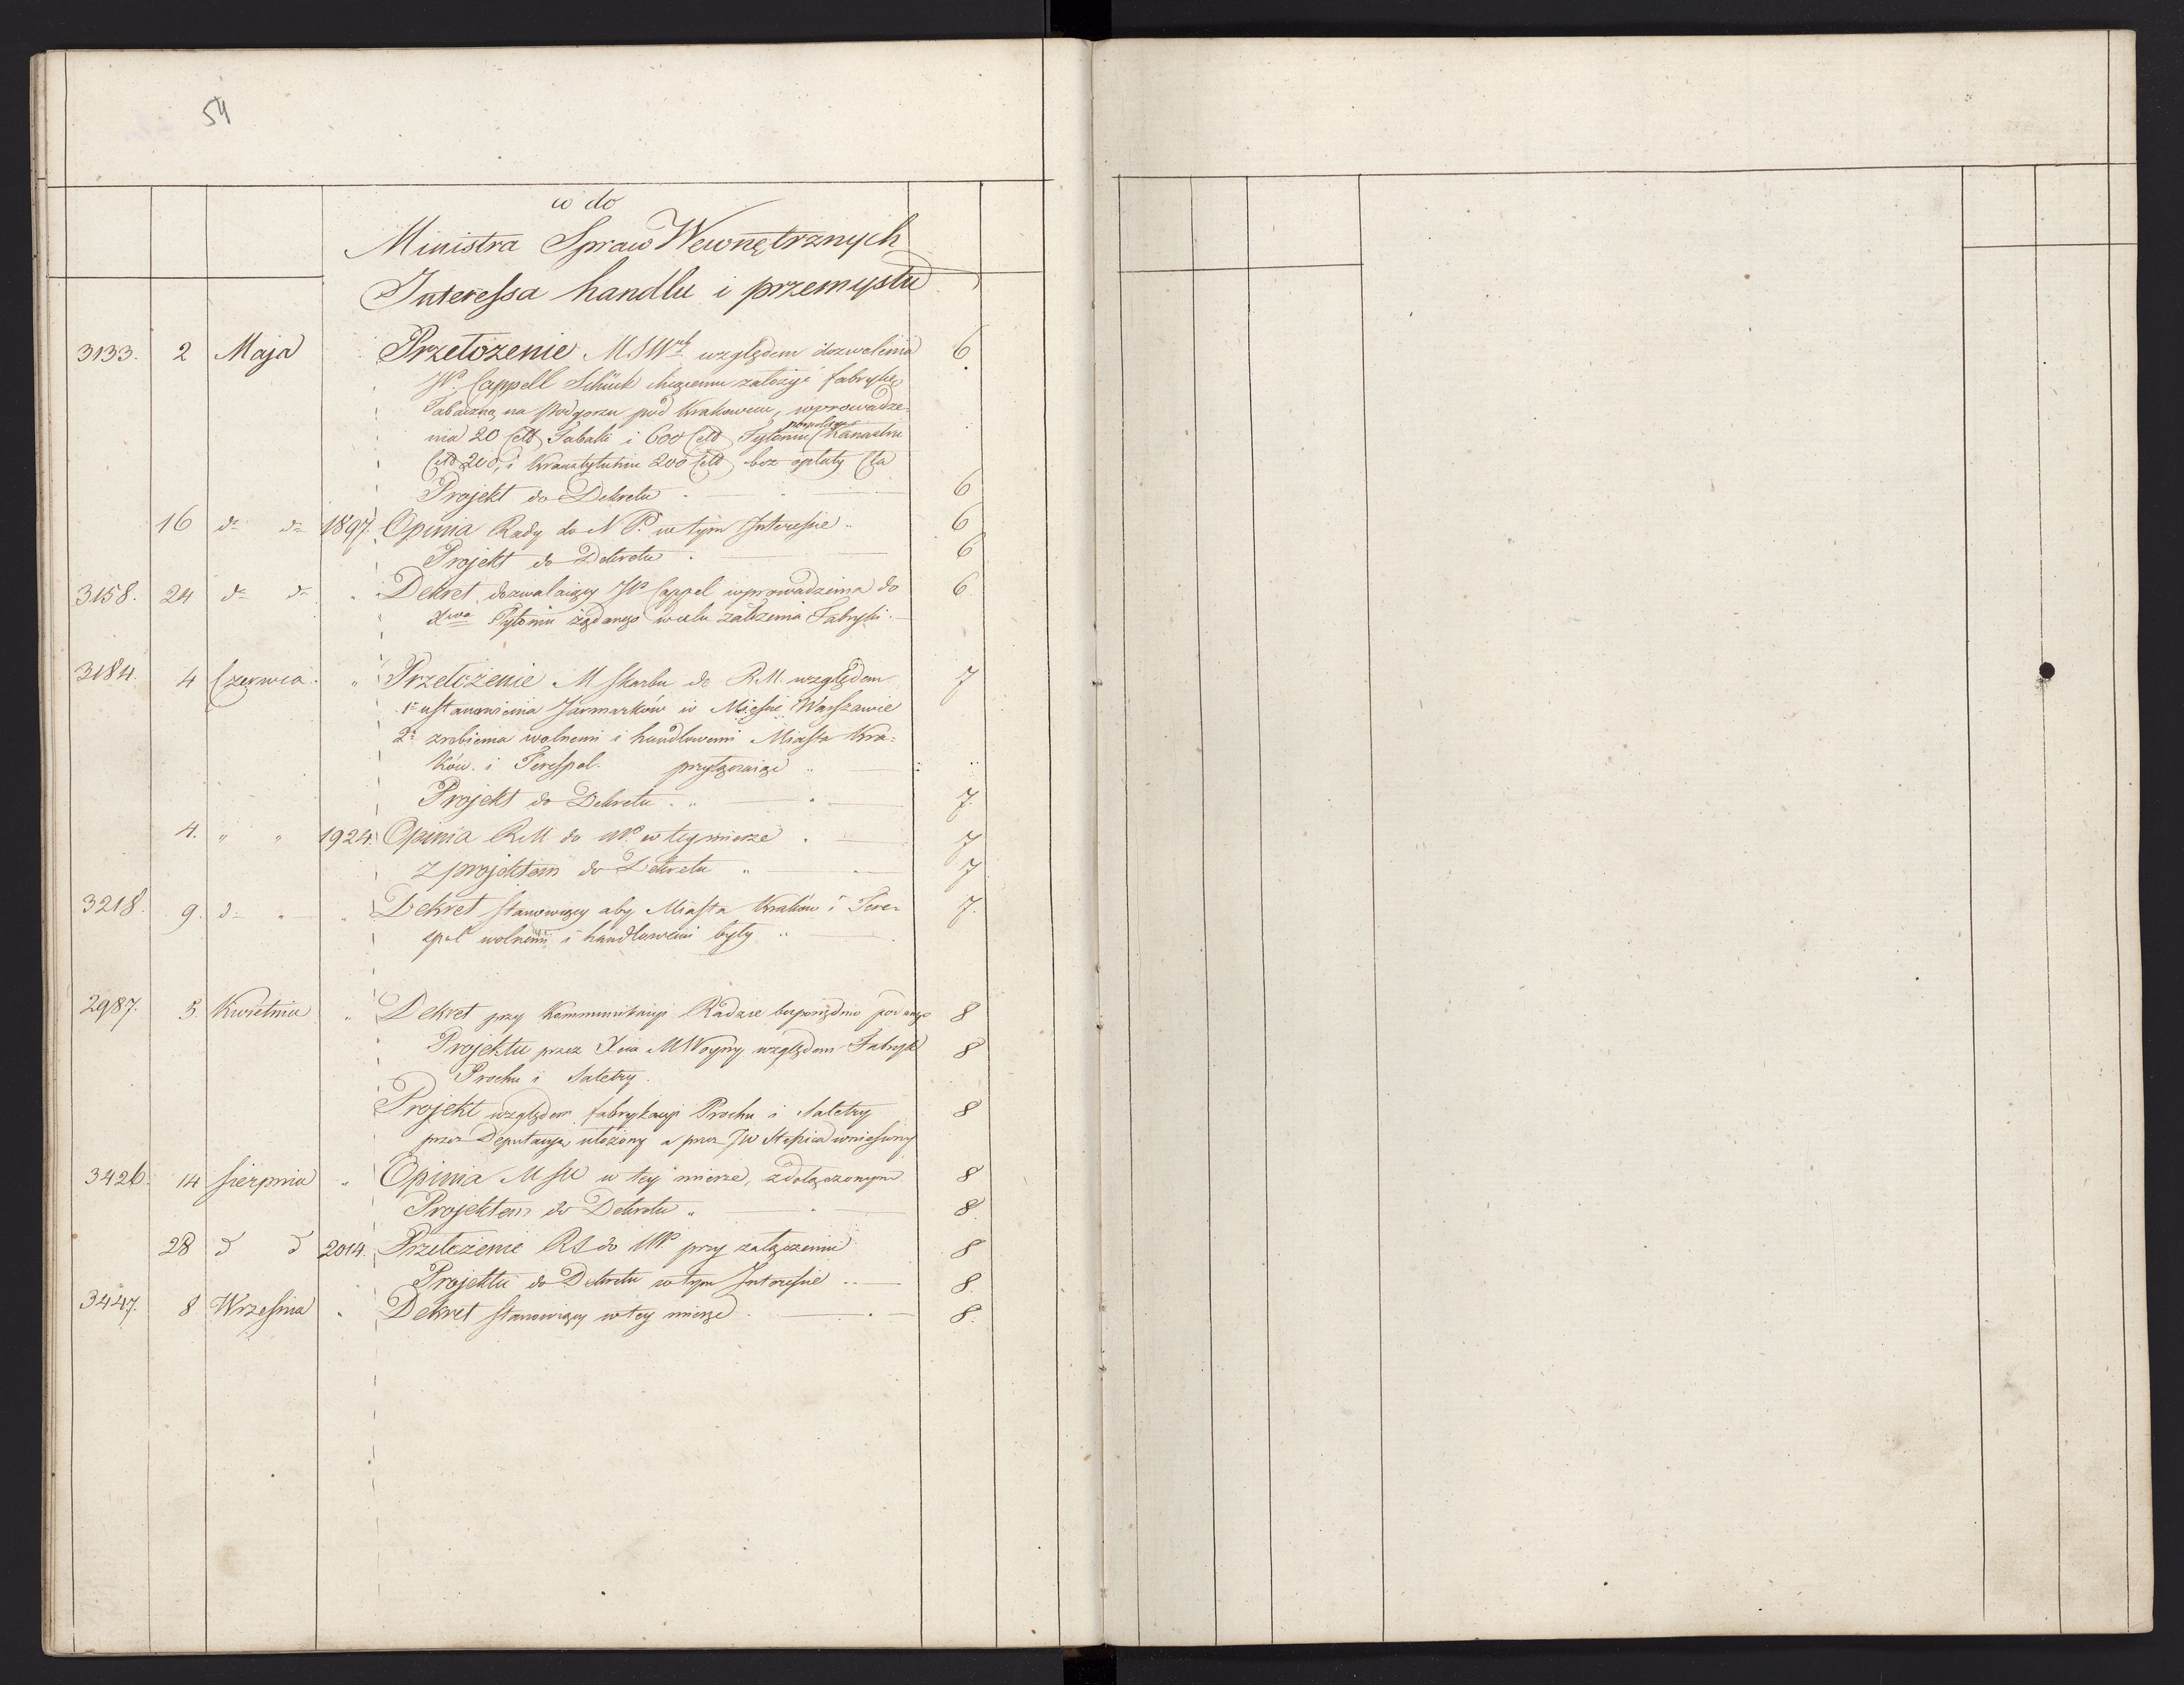 54
w do
Ministra Spraw Wewnętrznych
Interessa handlu i przemysłu
3133. 2 Maja Przełożenie MSWch względem dozwolenia 6
JP. Cappell Schück chcącemu założyć fabrykę
Tabaczną na Podgorzu pod Krakowem, wprowadze-
nia 20 Cett Tabaki i 600 Cett Tytoniu Kanastru
Cett 200, i 200 Cett bez opłaty Cła
Projekt do Dekretu 6
16 do do 1897. Opinia Rady do N P. w tym Interessie 6
Projekt do Dekretu 6
3158. 24 do do " Dekret dozwalaiący JP Cappel wprowadzenia do 6
Xtwa Tytoniu żądanego w celu założenia Fabryki.
3184. 4 Czerwca " Przełożenie M Skarbu do RM. względem 7
1o ustanowienia Jarmarków w Mieście Warszawie
2o zrobienia wolnemi i handlowemi Miasta Kra=
ków i Terespol. przyłączaiąc
Projekt do Dekretu 7.
4. " " 1924. Opinia RM do NP w tey mierze 7
z projektem do Dekretu 7
3218. 9. d " " Dekret stanowiący aby Miasta Kraków i Tere- 7.
spol wolnemi i handlowemi były
2987. 5. Kwietnia " Dekret przy Kommunikacyi Radzie bezpośrednio 8
Projektu przez Xcia MWoyny względem Fabryk 8
Prochu i Saletry.
Projekt względem fabrykacyi Prochu i Saletry 8
przez Deputacyą ułożony a przez JW wniesiony
3426. 14 Sierpnia " Opinia M w tey mierze, z dołączonym 8
Projektem do Dekretu " 8.
28 d d 2014. Przełożenie RS do NP. przy załączeniu 8
Projektu do Dekretu w tym Interessie 8.
3447. 8 Września " Dekret stanowiący w tey mierze 8.